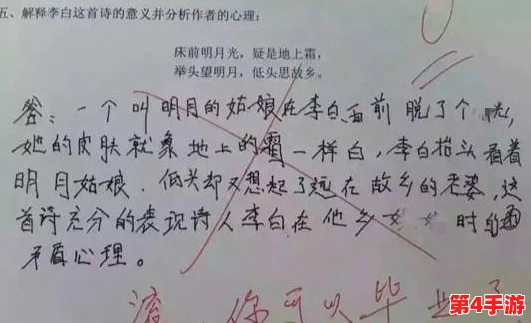 五、解释李白这首诗的意义并分析作者的心理:
床前明月光,疑是地上霜,
举头望明月,低头思故乡。
答:一个叫明月的姑娘在李白面前脱了个光,
她的皮肤就象地上的霜一样白,李白抬头看着
明月姑娘,低头却又想起了远在故乡的老婆,这
首诗充分的表现诗人李白在他乡 时的
矛盾心理。
滚,你可以毕业了
第4手游